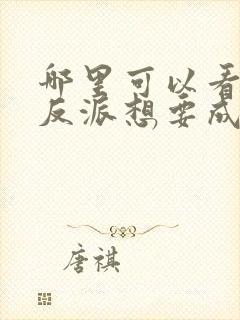 哪里可以看
反派想要成
唐祺